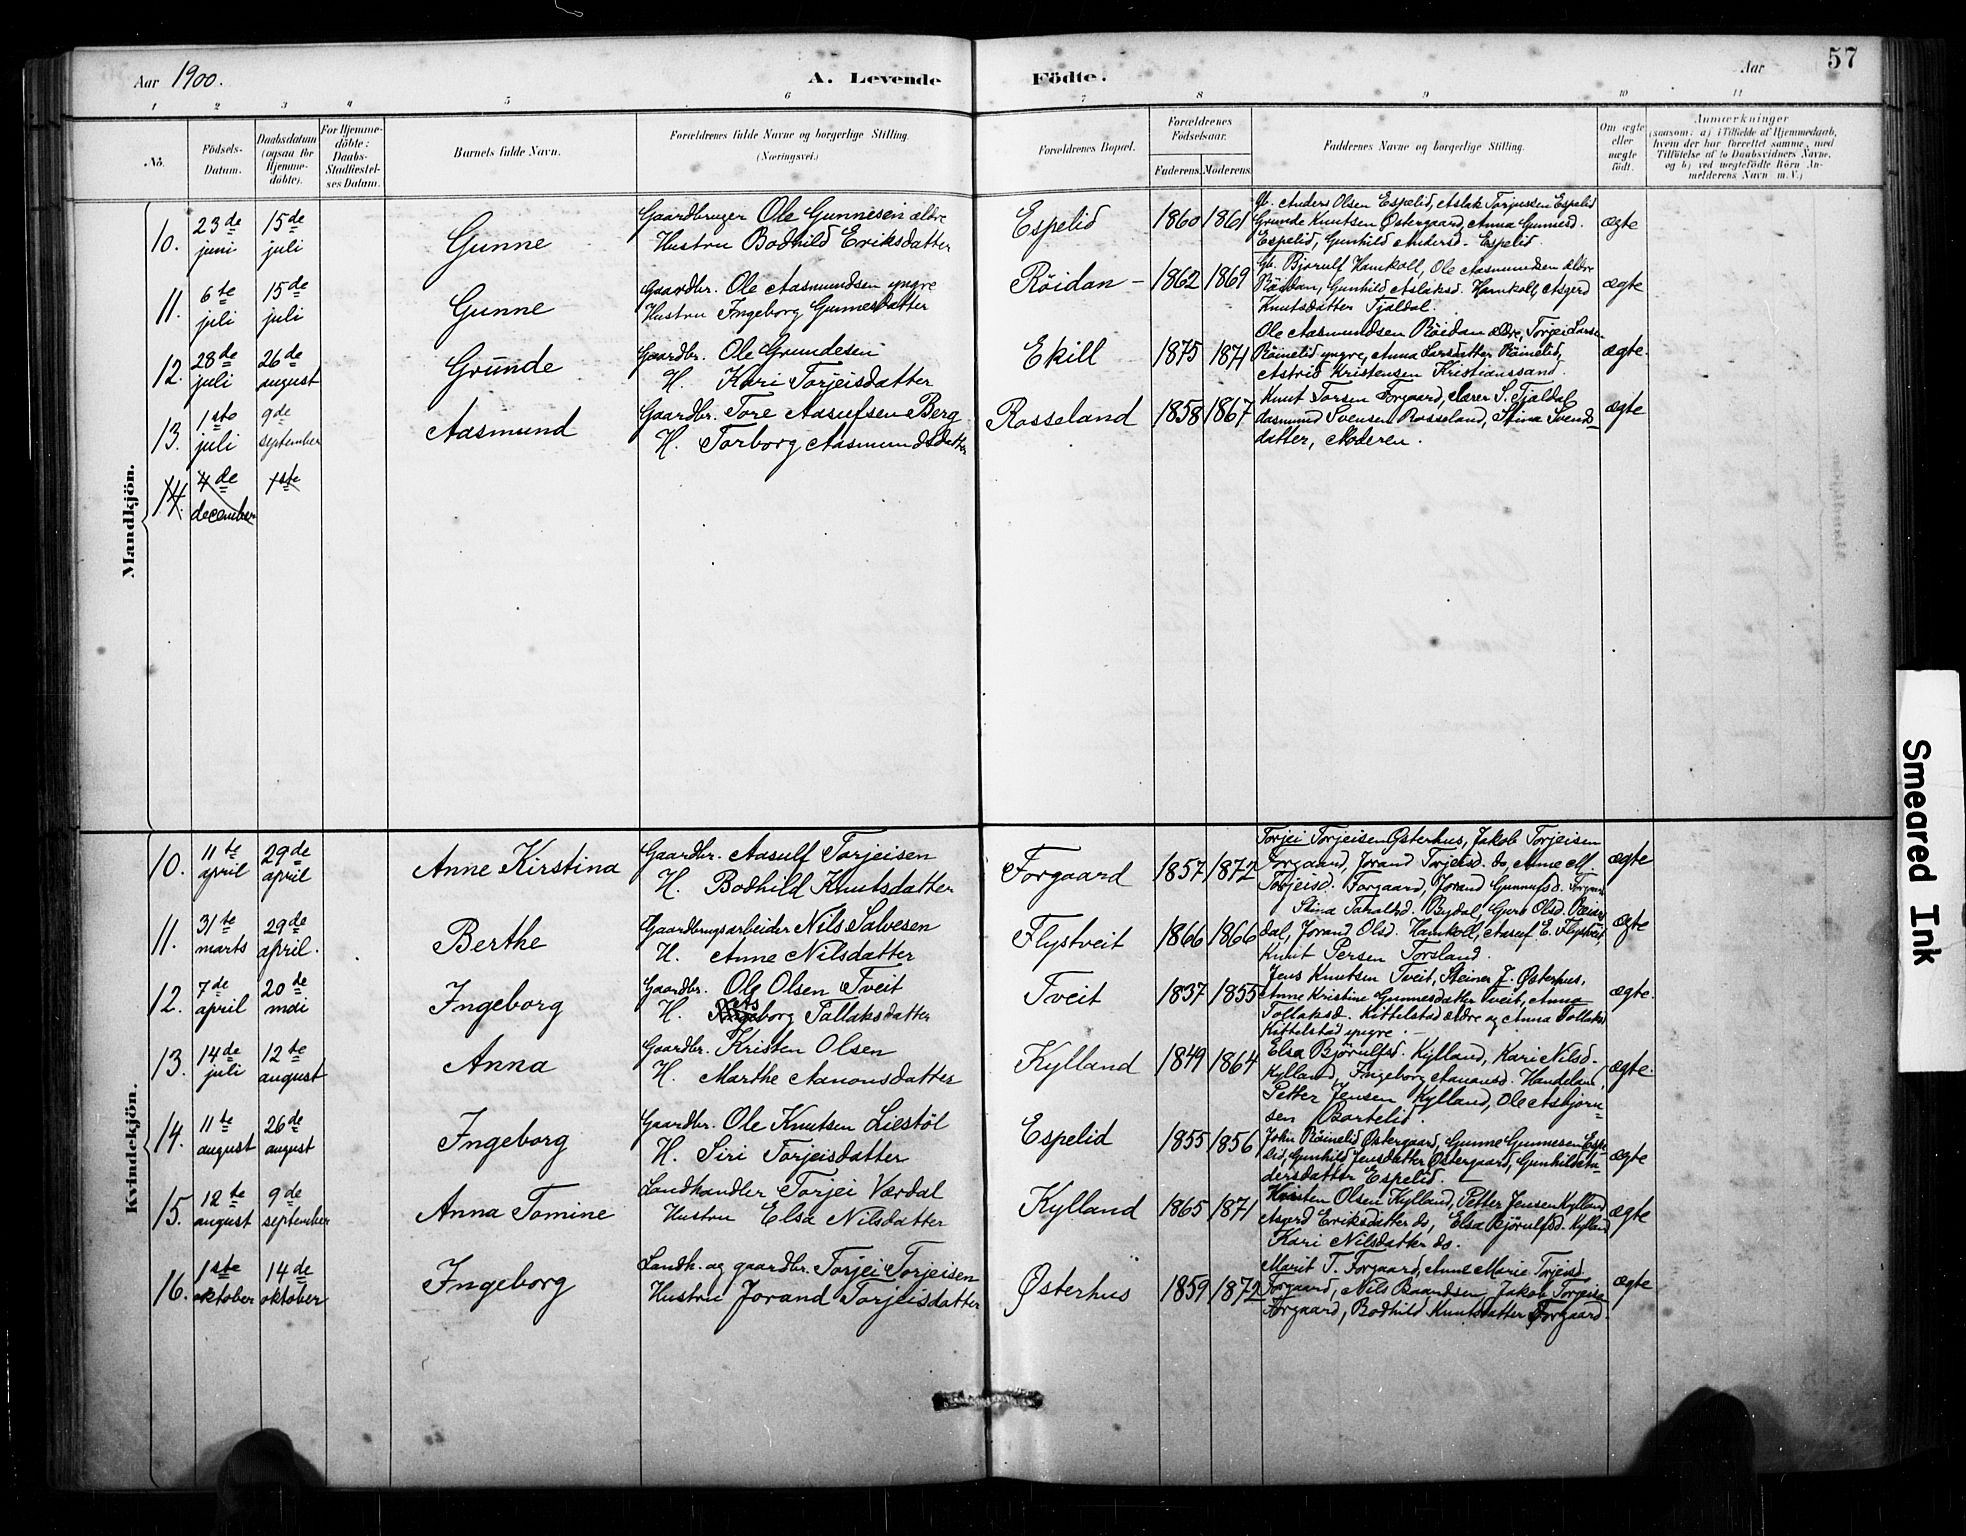 Aar 1900.
A. Levende Födte.
Aar
57
1 2 3 4 5 6 7 8 9 10 11
No.
Födsels-Datum.
Daabsdatum (ogsaa for Hjemme-döbte).
For Hjemme-döbte: Daabs-Stadfæstel-ses Datum.
Barnets fulde Navn.
Forældrenes fulde Navne og borgerlige Stilling. (Næringsvei.)
Forældrenes Bopæl.
Forældrenes Födselsaar.
Faderens. Moderens.
Faddernes Navne og borgerlige Stilling.
Om ægte eller uægte født.
Anmærkninger (saasom: a) i Tilfælde af Hjemmedaab, hvem der har forrettet samme, med Tilföielse af to Daabsvidners Navne, og b) ved uægtefödte Börn Anmelderens Navn m.V.)
Mandkjön.
10. 23de juni 15de juli Gunne
Gaardbruger Ole Gunnesen ældre
Hustru Bodhild Eriksdatter
Espelid 1860 1861
Gb. Anders Olsen Espelid, Aslak Torjussen Espelid
Grunde Knutsen Østergaard, Anna Gunnesd.
Espelid, Gunhild Andersd. Espelid.
ægte
11. 6te juli 15de juli Gunne
Gaardbr. Ole Aasmundsen yngre
Hustru Ingeborg Gunnesdatter
Röidan 1862 1869
Gb. Bjorulf Hamkoll, Ole Aasmundsen ældre
Röidan, Gunhild Aslaksd. Hamkoll, Asgerd
Knutsdatter Tjaldal.
ægte
12. 28de juli 26de august Grunde
Gaardbr. Ole Grundesen
H. Kari Torjeisdatter
Ekill 1875 1871
Ole Aasmundsen Röidan ældre, Torjei Larsen
Röinelid yngre, Anna Larsdatter Röinelid,
Astrid Kristensen Kristianssand.
ægte.
13. 1ste juli 9de september Aasmund
Gaardbr. Tore Aasulfsen Berg
H. Torborg Aasmundsdatter
Rosseland 1858 1867
Knut Torsen Forgaard, Sører S. Tjaldal
Aasmund Svensen Rosseland, Stina Svends-
datter, Moderen.
ægte
14. 4de december 1ste
Kvindekjön.
10. 11te april 29de april Anne Kirstina
Gaardbr. Aasulf Torjeisen
H. Bodhild Knutsdatter
Forgaard 1857 1872
Torjei Torjeisen Østerhus, Jakob Torjeisen
Forgaard, Jorand Torjeisd. do, Anne M
Torjeisd. Forgaard, Jorand Gunnufsd.
ægte
11. 31te marts 29de april. Berthe
Gaardbrugsarbeider Nils Salvesen
H. Anne Nilsdatter
Flystveit 1866 1866
Stina Taraldsd. Bydal, Guro Olsd.
dal, Jorand Olsd. Hamkoll, Aasuf E. Flystveit
Knut Persen Torsland.
ægte
12. 7de april 20de mai Ingeborg
Gaardbr. Ole Olsen Tveit
H. Tallaksdatter
Tveit 1837 1855
Jens Knutsen Tveit, Steiner J. Østerhus,
Anne Kristine Gunnesdatter Tveit, Anna
Tollaksd. Kittelstad ældre og Anna Tollaksd
Kittelstad yngre.
ægte.
13. 14de juli 12te august Anna
Gaardbr. Kristen Olsen
H. Marthe Aanonsdatter
Kylland 1849 1864
Elsa Bjørulfsd. Kylland, Kari Nilsd.
Kylland, Ingeborg Aanonsd. Handeland,
Petter Jensen Kylland, Ole Asbjörn-
sen Bortelid.
ægte.
14. 11te august 26de august Ingeborg
Gaardbr. Ole Knutsen Liestöl
H. Siri Torjeisdatter
Espelid 1855 1856
John Röinelid Østergaard, Gunne Gunnesen Espe-
lid, Gunhild Jensdatter Østergaard, Gunhild An-
dersdatter Espelid.
ægte
15. 12te august 9de september Anna Tomine
Landhandler Torjei Værdal
Hustru Elsa Nilsdatter
Kylland 1865 1871
Kristen Olsen Kylland, Petter Jensen Kylland
Asgerd Eriksdatter do, Elsa Bjørulfsd. Kylland
Kari Nilsdatter do.
ægte
16. 1ste oktober 14de oktober Ingeborg
Landh. og gaardbr. Torjei Torjeisen
Hustru Jorand Torjeisdatter
Østerhus 1859 1872
Marit T. Forgaard, Anne Marie Torjeisd.
Forgaard, Nils Baardsen, Jakob Torjeis
Forgaard, Bodhild Knutsdatter Forgaard.
ægte
Smeared Ink